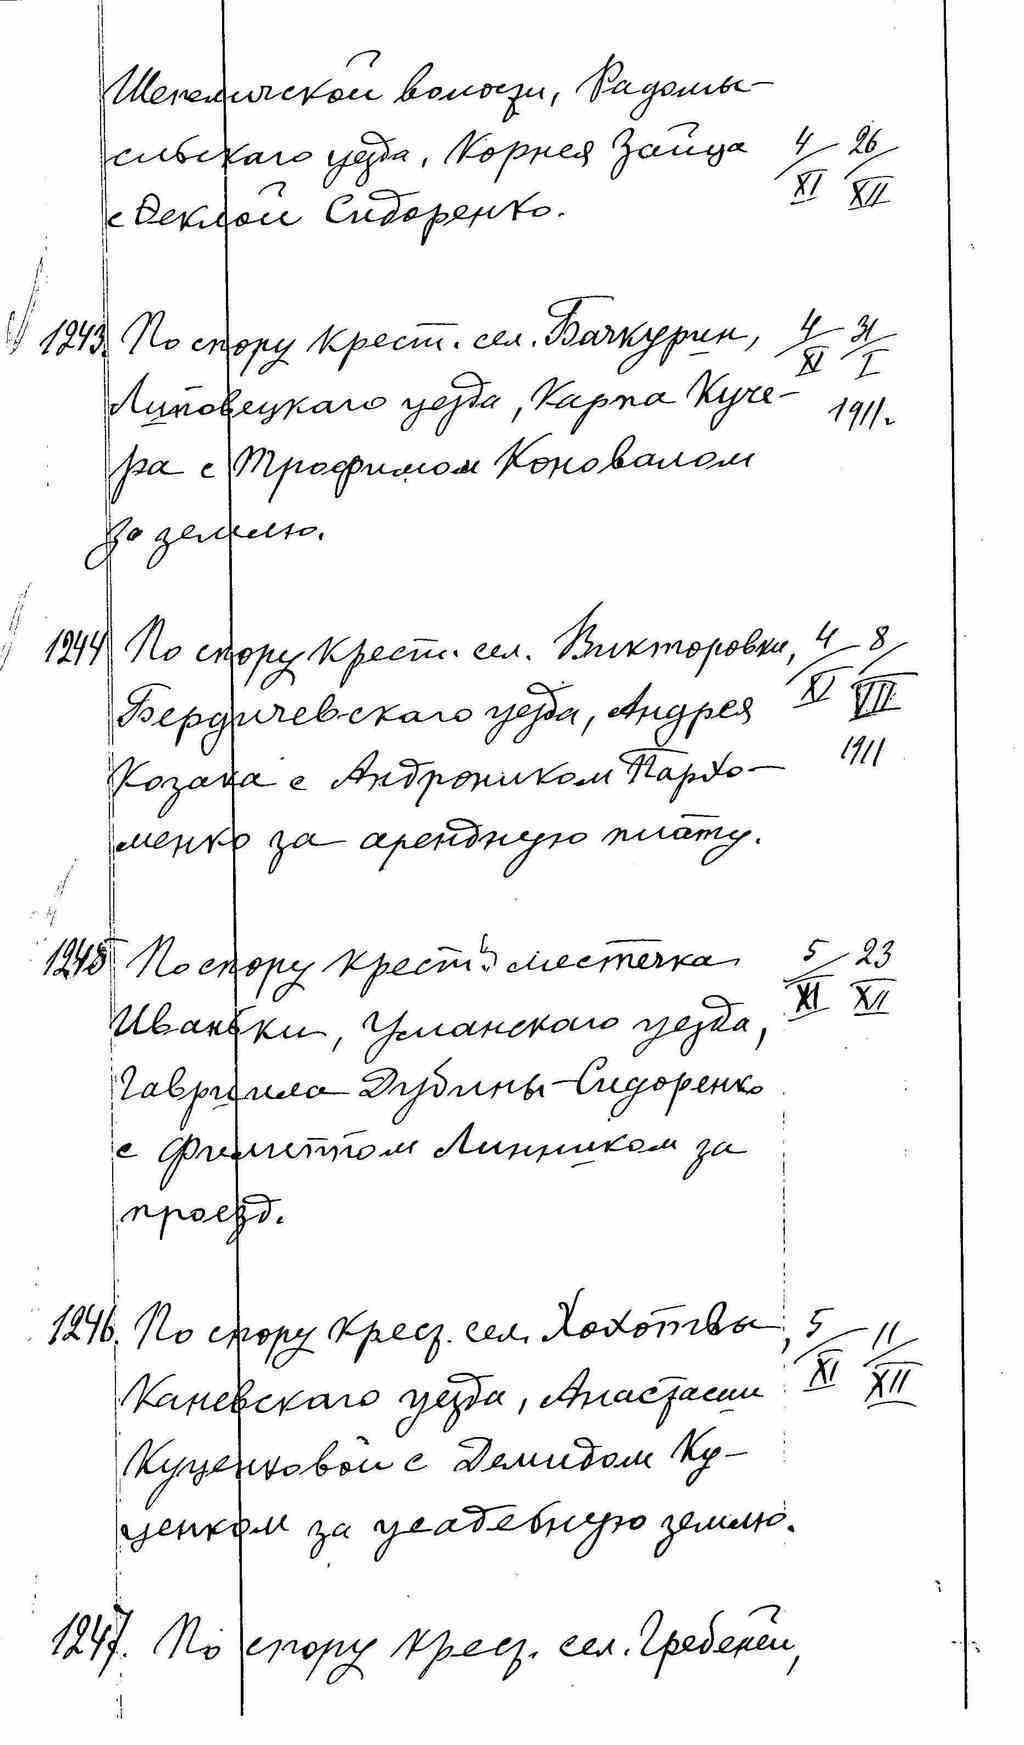 Шепеличской волости, Радомы-
сльскаго уезда, Корнея Зайца 4/XI 26/XII
с Феклой Сидоренко.
1243. По спору крест. сел. Бачкурин, 4/XI 31/I
Липовецкаго уезда, Карпа Куче- 1911.
ра с Трофимом Коновалом
за землю.
1244 По спору крест. сел. Викторовки, 4/XI 8/VII
Бердичевскаго уезда, Андрея
Козака с Андроником Пархо- 1911
менко за арендную плату.
1245 По спору крест. местечка 5/XI 23/XII
Иваньки, Уманскаго уезда,
Гавриила Дубины-Сидоренко
с Филиппом Линником за
проезд.
1246. По спору крест. сел. Хохотвы, 5/XI 11/XII
Каневскаго уезда, Анастасии
Куценковой с Демидом Ку-
ценком за усадебную землю.
1247. По спору крест. сел. Гребеней,